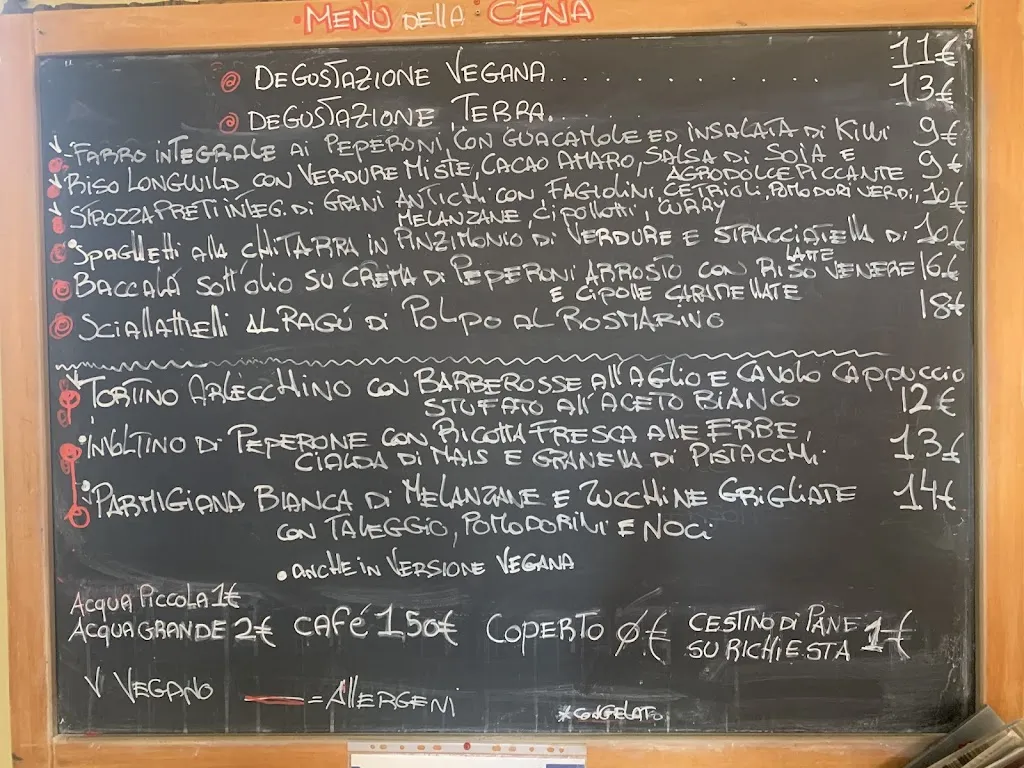 MENU DELLA CENA
DEGUSTAZIONE VEGANA........... 11€
DEGUSTAZIONE TERRA. 13€
V FARRO INTEGRALE AI PEPERONI, CON GUACAMOLE ED INSALATA DI KIWI 9€
V RISO LONGWILD CON VERDURE MISTE, CACAO AMARO, SALSA DI SOIA E 9€
AGRODOLCE PICCANTE
V STROZZAPRETI INTEG. DI GRANI ANTICHI CON FAGIOLINI, CETRIOLI, POMODORI VERDI, 10€
MELANZANE, CIPOLLOTTI, CURRY
•SPAGHETTI ALLA CHITARRA IN PINZIMONIO DI VERDURE E STRACCIATELLA DI 10€
LATTE
BACCALÁ SOTT'OLIO SU CREMA DI PEPERONI ARROSTO CON RISO VENERE 16€
E CIPOLLE CARAMELLATE
SCIALLATIELLI AL RAGÚ DI POLPO AL ROSMARINO 18€
V TORTINO ARLECCHINO CON BARBEROSSE ALL'AGLIO E CAVOLO CAPPUCCIO
STUFATO ALL'ACETO BIANCO 12€
•INVOLTINO DI PEPERONE CON RICOTTA FRESCA ALLE ERBE, 13€
CIALDA DI MAIS E GRANELLA DI PISTACCHI.
•PARMIGIANA BIANCA DI MELANZANE E ZUCCHINE GRIGLIATE 14€
CON TALEGGIO, POMODORINI E NOCI
•ANCHE IN VERSIONE VEGANA
ACQUA PICCOLA 1€
ACQUA GRANDE 2€ CAFÉ 1.50€ COPERTO Ø.€ CESTINO DI PANE 1€
SU RICHIESTA
V VEGANO = ALLERGENI
*CONGELATO